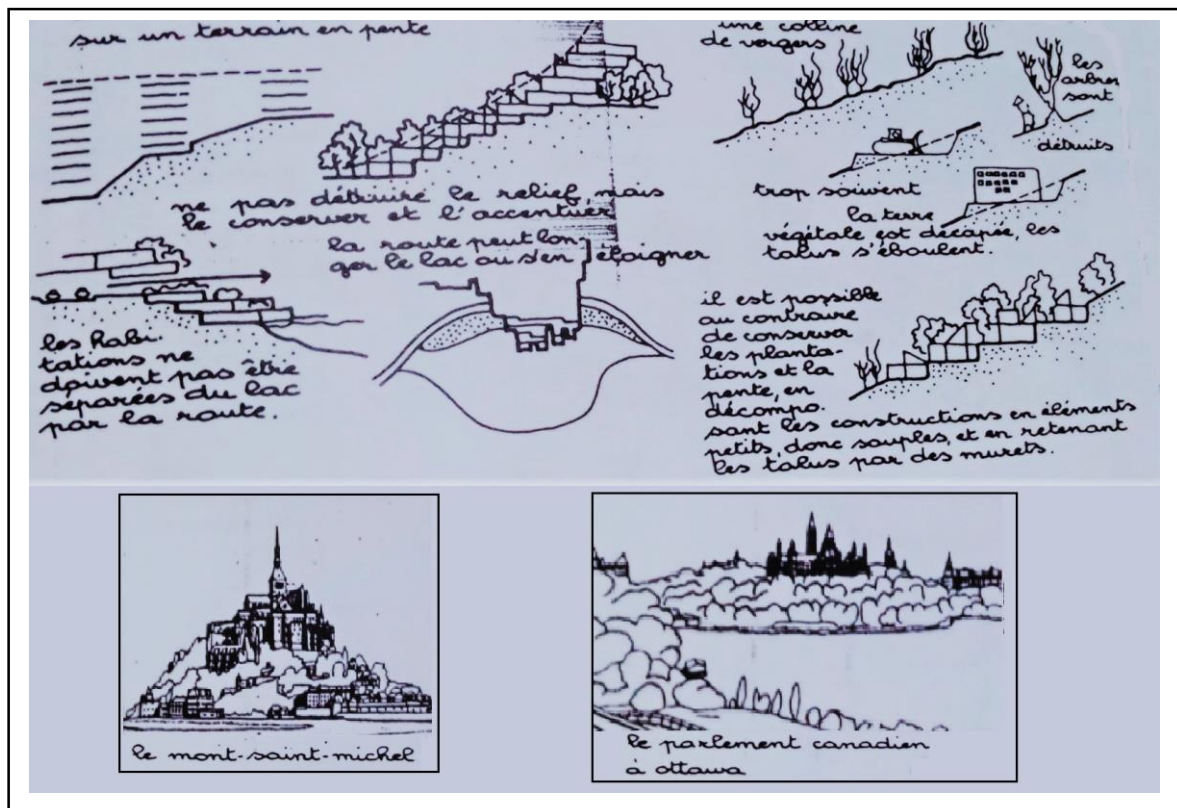 sur un terrain en pente
ne pas détruire le relief, mais
le conserver et l'accentuer
la route peut lon-
ger le lac ou s'en éloigner
les habi-
tations ne
doivent pas être
séparées du lac
par la route.
une colline
de vergers
les
arbres
sont
détruits
trop souvent
la terre
végétale est décapée, les
talus s'éboulent.
il est possible
au contraire
de conserver
les planta-
tions et la
pente, en
décompo-
sant les constructions en éléments
petits, donc souples, et en retenant
les talus par des murets.
le mont-saint-michel
le parlement canadien
à ottawa